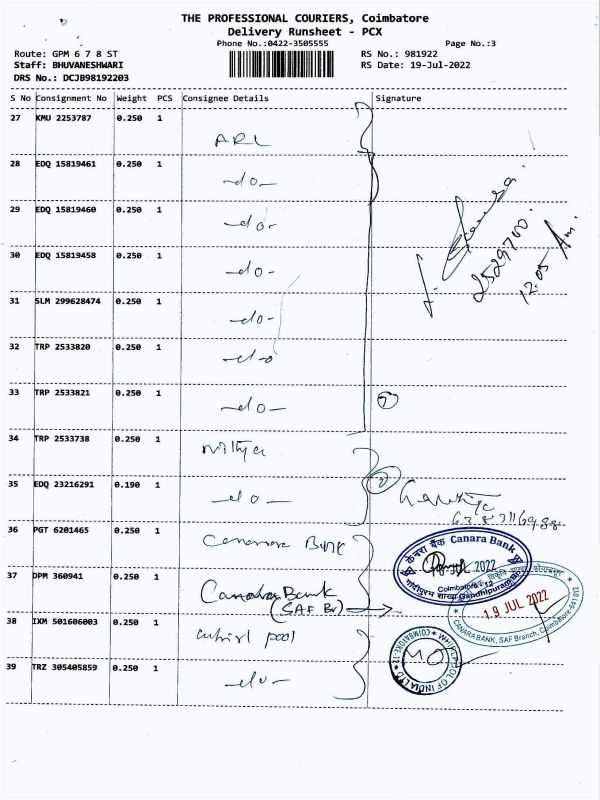 THE PROFESSIONAL COURIERS, Coimbatore
Delivery Runsheet - PCX
Phone No.:0422-3505555 Page No.:3
Route: GPM 6 7 8 ST RS No.: 981922
Staff: BHUVANESHWARI RS Date: 19-Jul-2022
DRS No.: DCJB98192203
S No Consignment No Weight PCS Consignee Details Signature
27 KMU 2253787 0.250 1
ARL
28 EDQ 15819461 0.250 1
-do-
29 EDQ 15819460 0.250 1
-do-
30 EDQ 15819458 0.250 1
-do-
2529700
12.05 Am.
31 SLM 299628474 0.250 1
-do-
32 TRP 2533820 0.250 1
-do
33 TRP 2533821 0.250 1
-do- 7
34 TRP 2533738 0.250 1
nithya
35 EDQ 23216291 0.190 1
-do- 2
36 PGT 6201465 0.250 1
केनरा बैंक Canara Bank
JUL 2022
Coimbatore - 12
Gandhipuram
37 DPM 360941 0.250 1
Canara Bank
(SAF Br)
19 JUL 2022
CANARA BANK, SAF Branch, Coimbatore
38 IXM 501606003 0.250 1
whirl pool
WHIRLPOOL OF INDIA LTD
COIMBATORE-12
39 TRZ 305405859 0.250 1
-do-